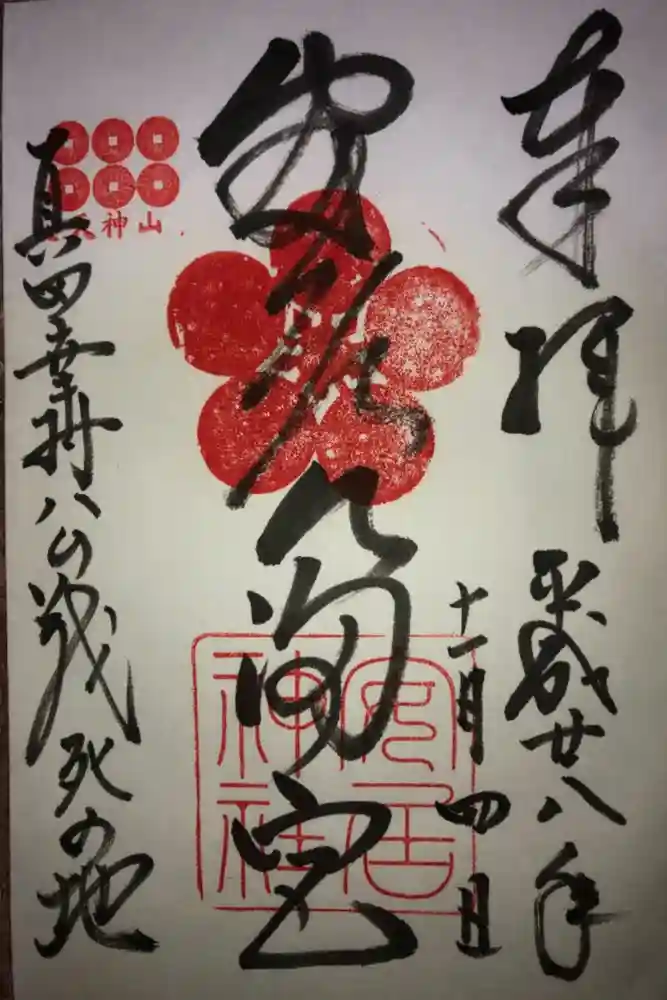 奉拝
平成廿八年
十一月四日
安居天満宮
安居
神社
真田幸村公の戦死の地
天神山